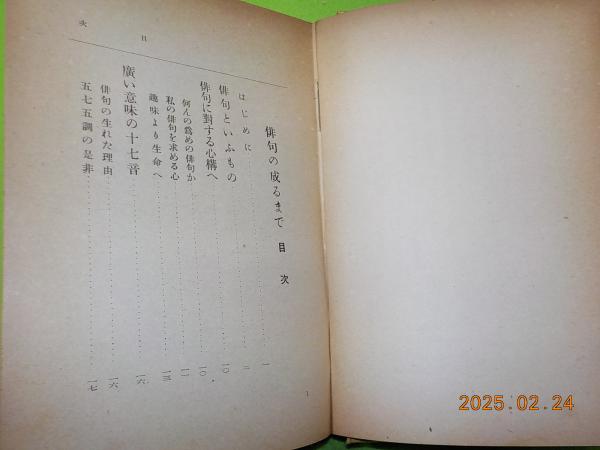 俳句の成るまで 目次
はじめに 一
俳句といふもの 二
俳句に對する心構へ 一〇
何んの爲めの俳句か 一〇
私の俳句を求める心 一一
趣味より生命へ 一三
廣い意味の十七音 一六
俳句の生れた理由 一六
五七五調の是非 一七
目次
1
2025.02.24